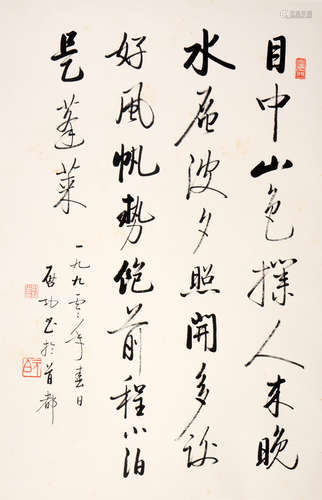 目中山色撲人来晚
水層波夕照開多謝
好風帆勢飽前程小泊
是蓬莱
一九九零年春日
啟功书於首都